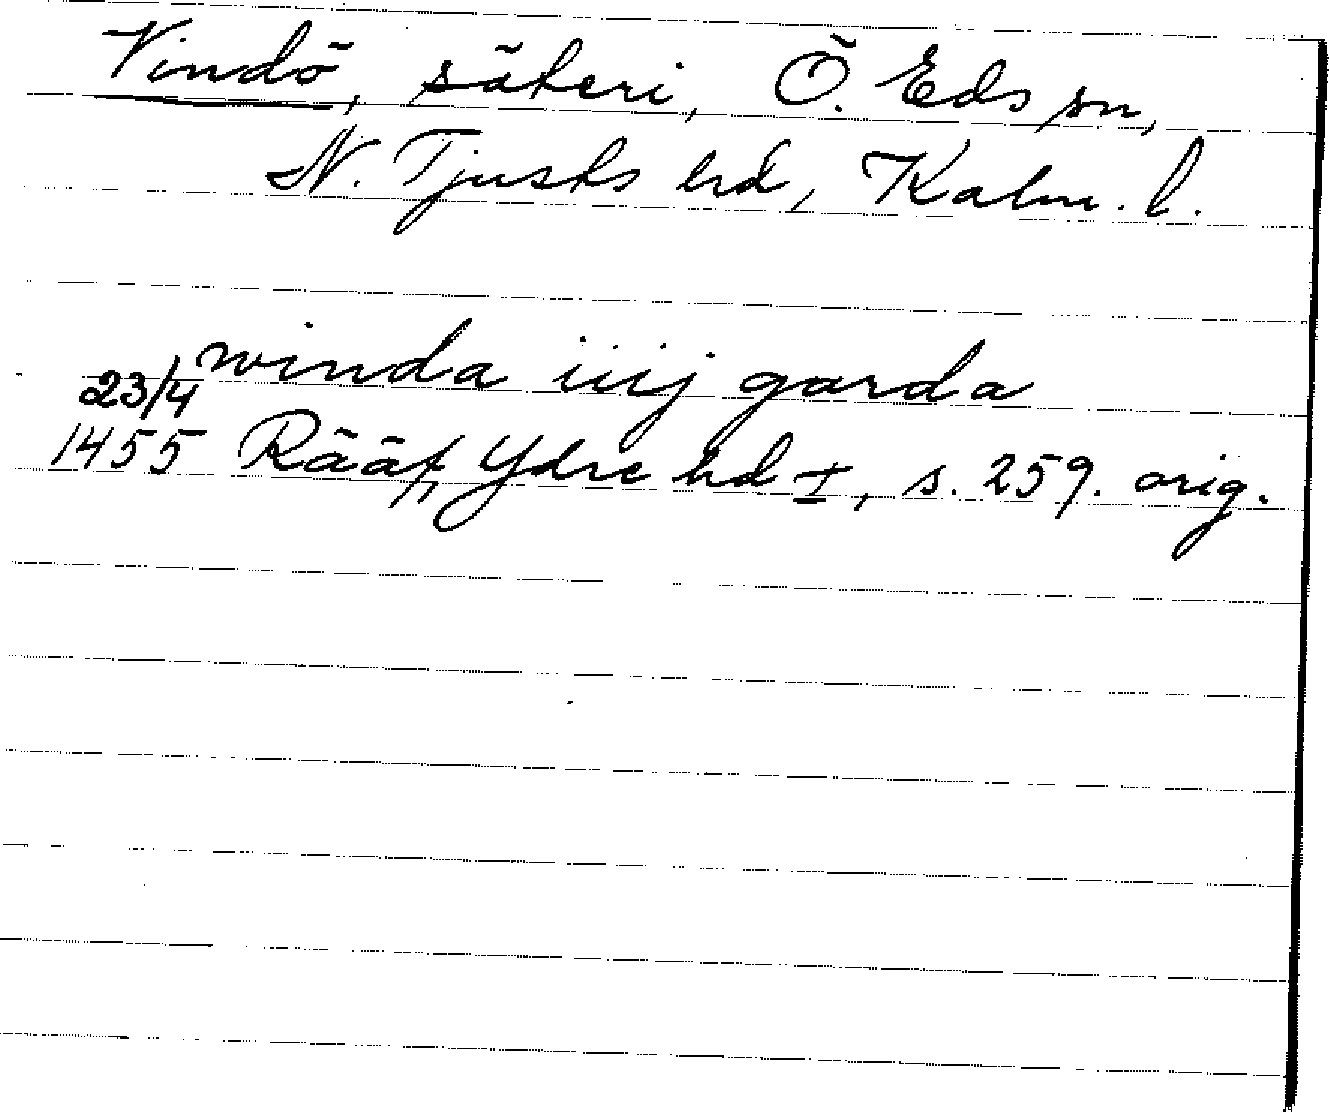 Vindö, säteri, Ö. Eds sn,
N. Tjusts hd, Kalm. l.
winda iiij garda
23/4
1455 Rääf, Ydre hd I, s. 259. orig.